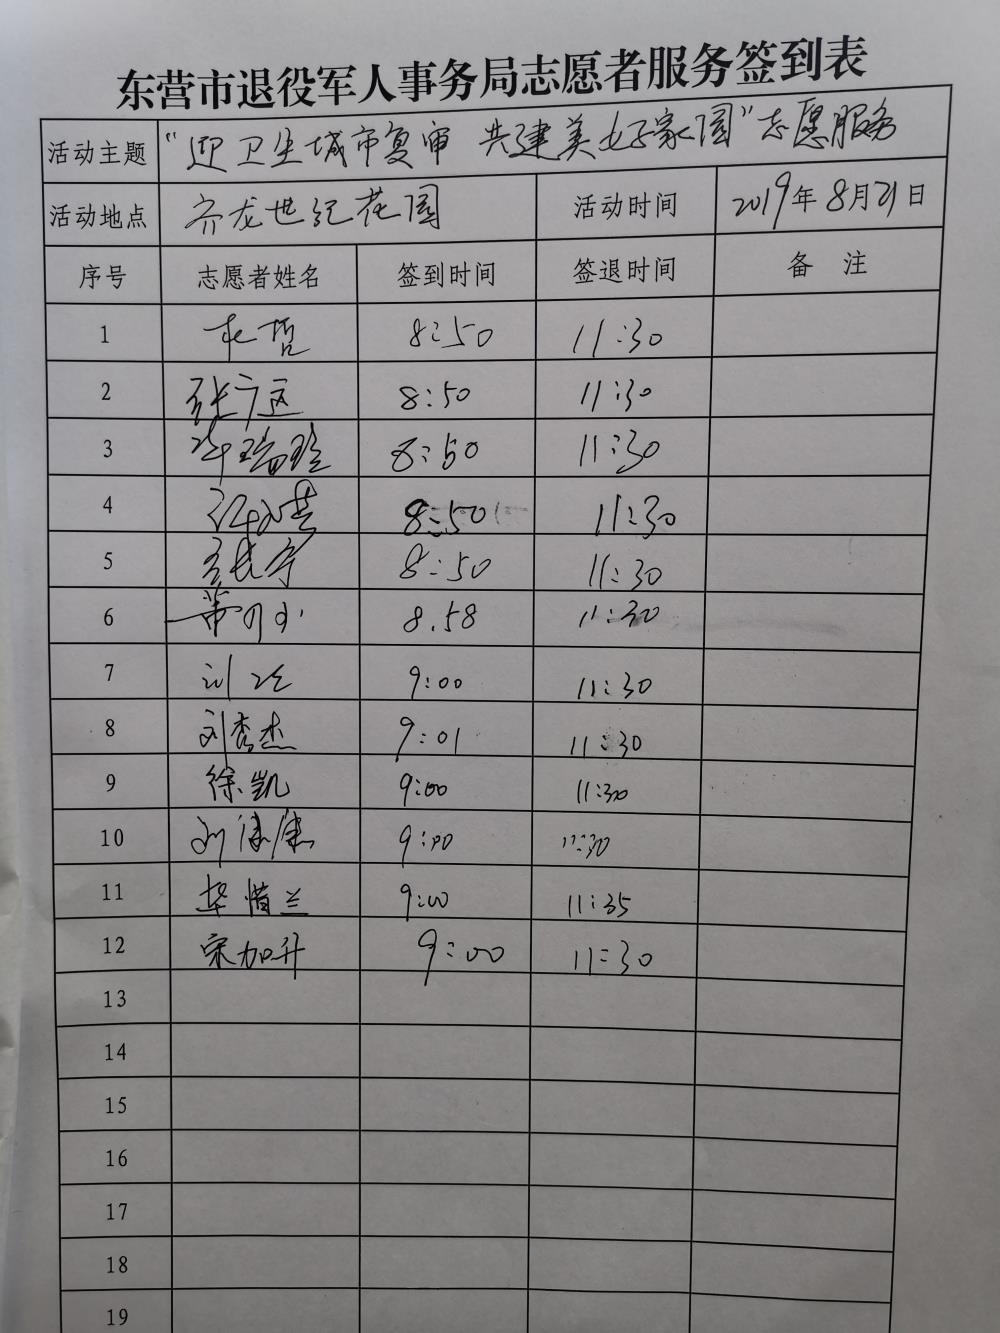 东营市退役军人事务局志愿者服务签到表
活动主题 “迎卫生城市复审 共建美好家园”志愿服务
活动地点 齐龙世纪花园 活动时间 2019年8月21日
序号 志愿者姓名 签到时间 签退时间 备 注
1 8:50 11:30
2 8:50 11:30
3 8:50 11:30
4 8:50 11:30
5 8:50 11:30
6 8.58 11:30
7 9:00 11:30
8 刘秀杰 9:01 11:30
9 徐凯 9:00 11:30
10 9:00 11:30
11 9:00 11:35
12 宋加升 9:00 11:30
13
14
15
16
17
18
19